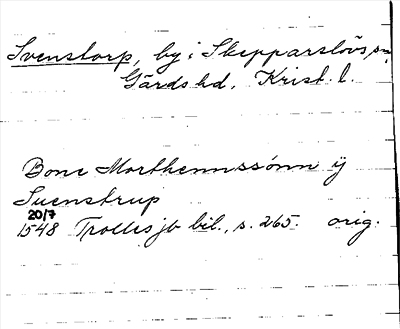 Svenstorp, by i Skepparslövs sn,
Gärds hd, Krist. l.
Bonc Morthennssónn ÿ
Suenstrup
20/7
1548 Trolles jb bil., s. 265. orig.